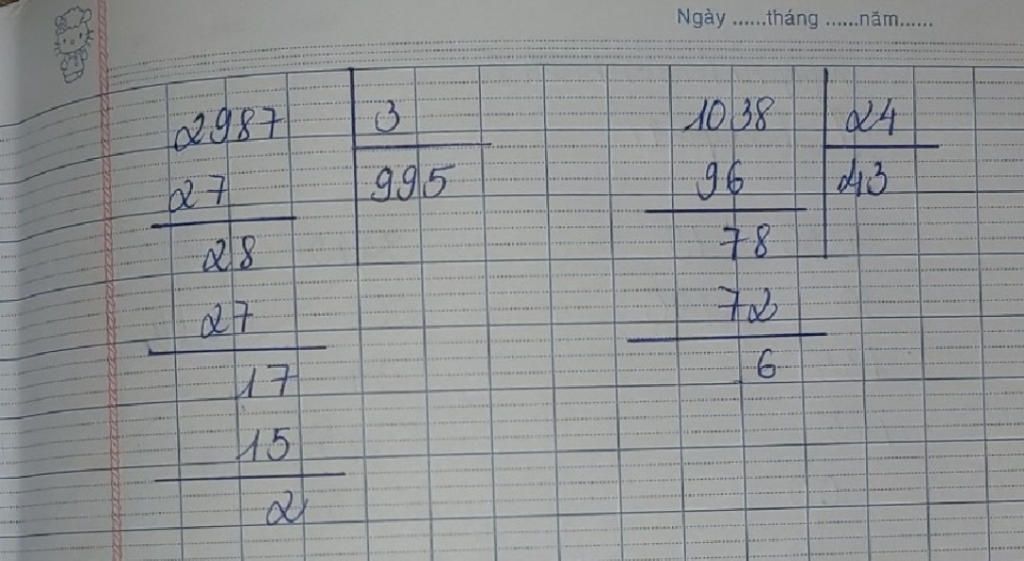 Ngày ......tháng ......năm......
2987 3
27 995
28
27
17
15
2
1038 24
96 43
78
72
6